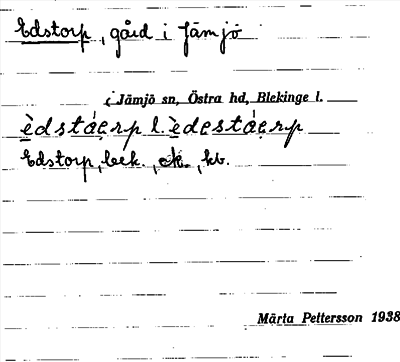 Edstorp, gård i Jämjö
i Jämjö sn, Östra hd, Blekinge l.
èdstáerp l. èdestáerp
Edstorp, bek., ek., kb.
Märta Pettersson 1938